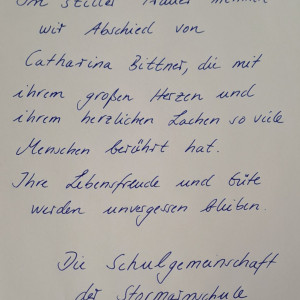 In stiller Trauer nehmen
wir Abschied von
Catharina Bittner, die mit
ihrem großen Herzen und
ihrem herzlichen Lachen so viele
Menschen berührt hat.
Ihre Lebensfreude und Güte
werden unvergessen bleiben.
Die Schulgemeinschaft
der Stormarnschule